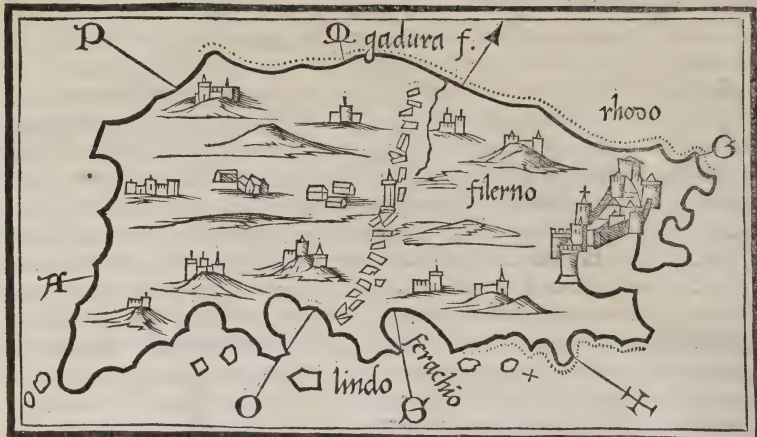 P
M gadura f.
rhodo
G
filerno
A
lindo
ferachio
O
S